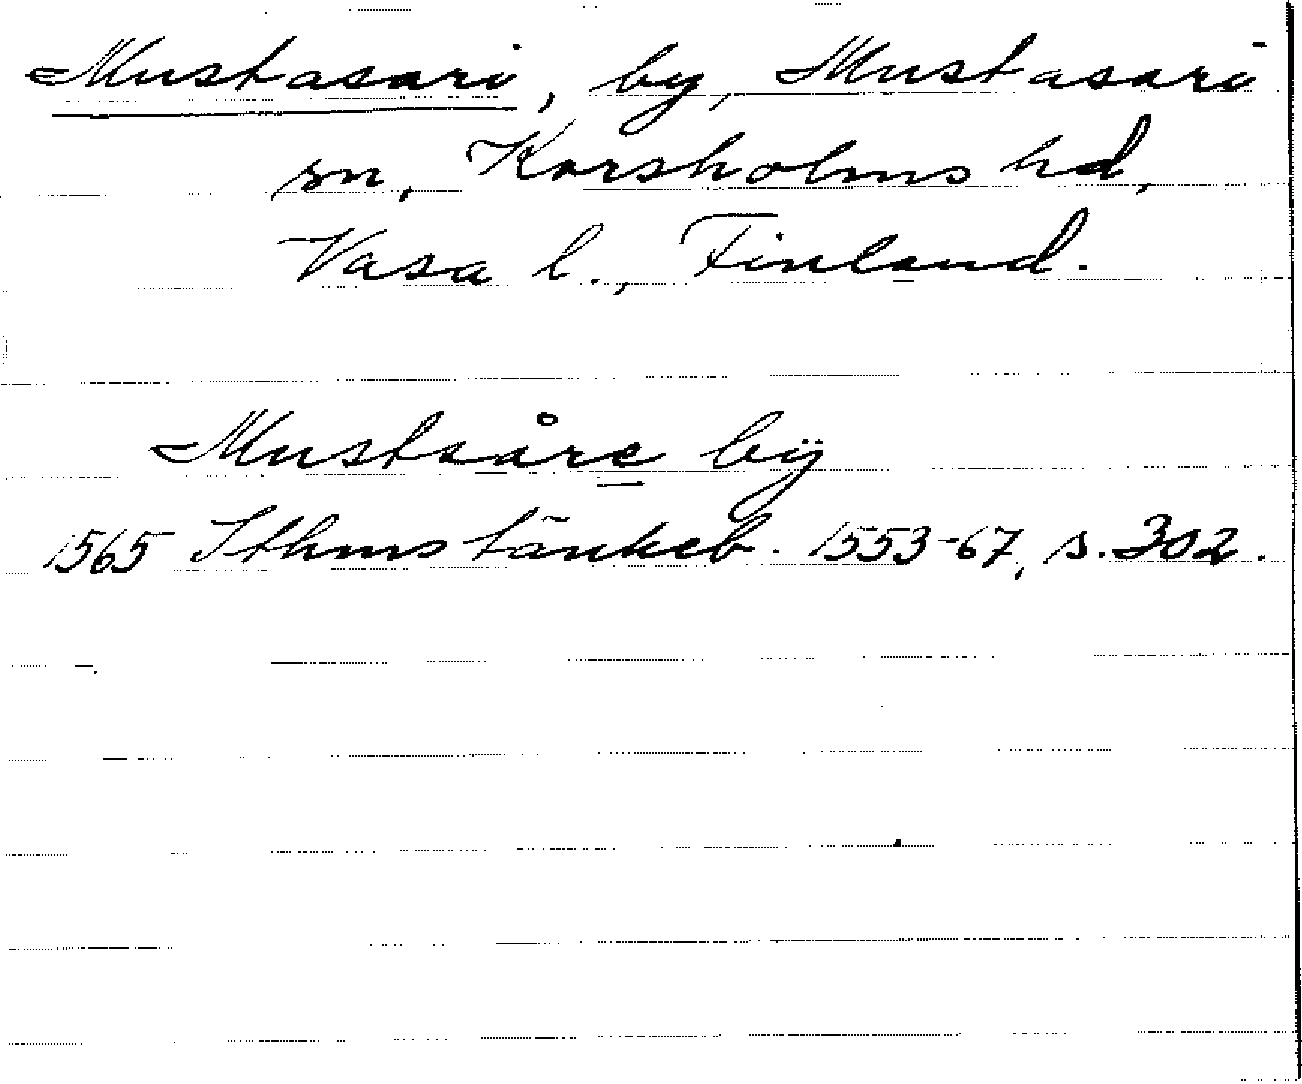 Mustasari, by, Mustasari
sn, Korsholms hd,
Vasa l., Finland.
Mustsåre bÿ
1565 Sthms tänkeb. 1553-67, s. 302.